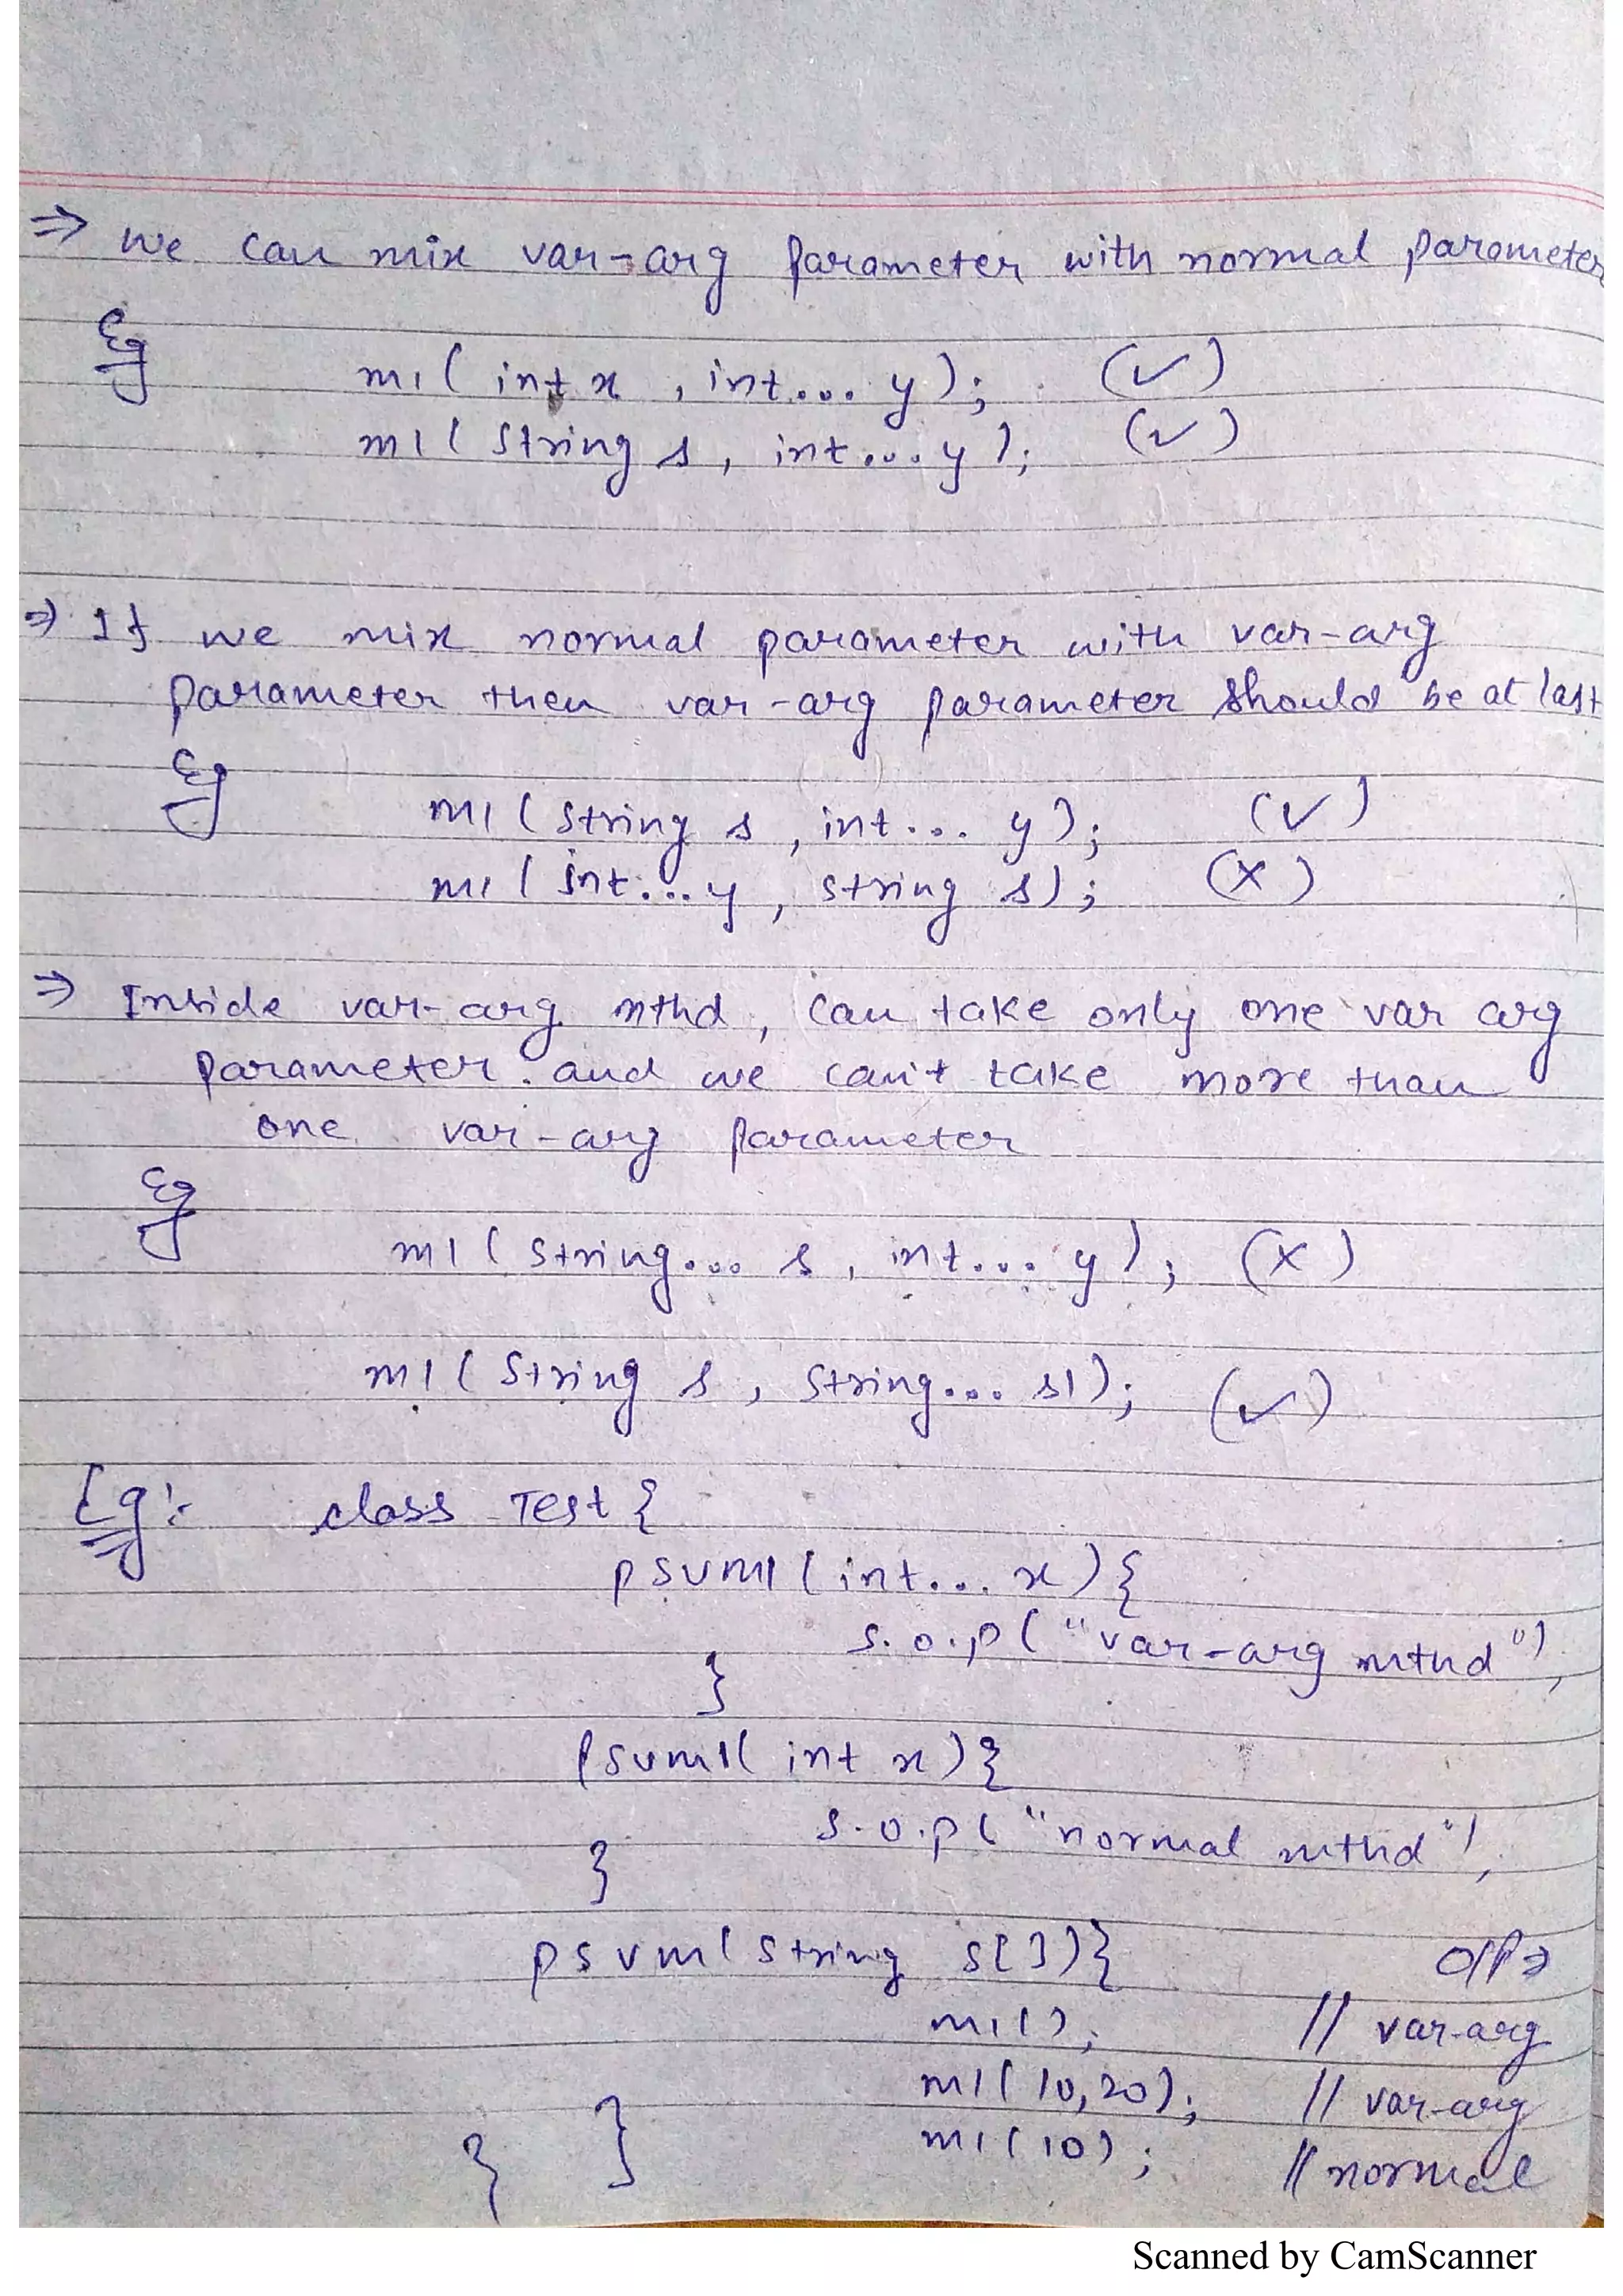 ⇒ we can mix var-arg parameter with normal parameter
Eg
m1( int x , int... y); (✓)
m1( String s, int...y ); (✓)
⇒ If we mix normal parameter with var-arg
parameter then var-arg parameter should be at last
Eg
m1( String s , int... y ); (✓)
m1( int...y , string s); (x)
⇒ Inside var-arg mthd, can take only one var arg
parameter. and we can't take more than
one var-arg parameter
Eg
m1( String... s , int... y ); (x)
m1( String s , String... s1); (✓)
Eg:- class Test {
psvm1( int... x ) {
s.o.p( "var-arg mthd");
}
psvm1( int x ) {
s.o.p( "normal mthd");
}
psvm( String s[ ]) { O/P ⇒
m1( ); // var-arg
m1( 10,20); // var-arg
m1( 10); // normal
} }
Scanned by CamScanner